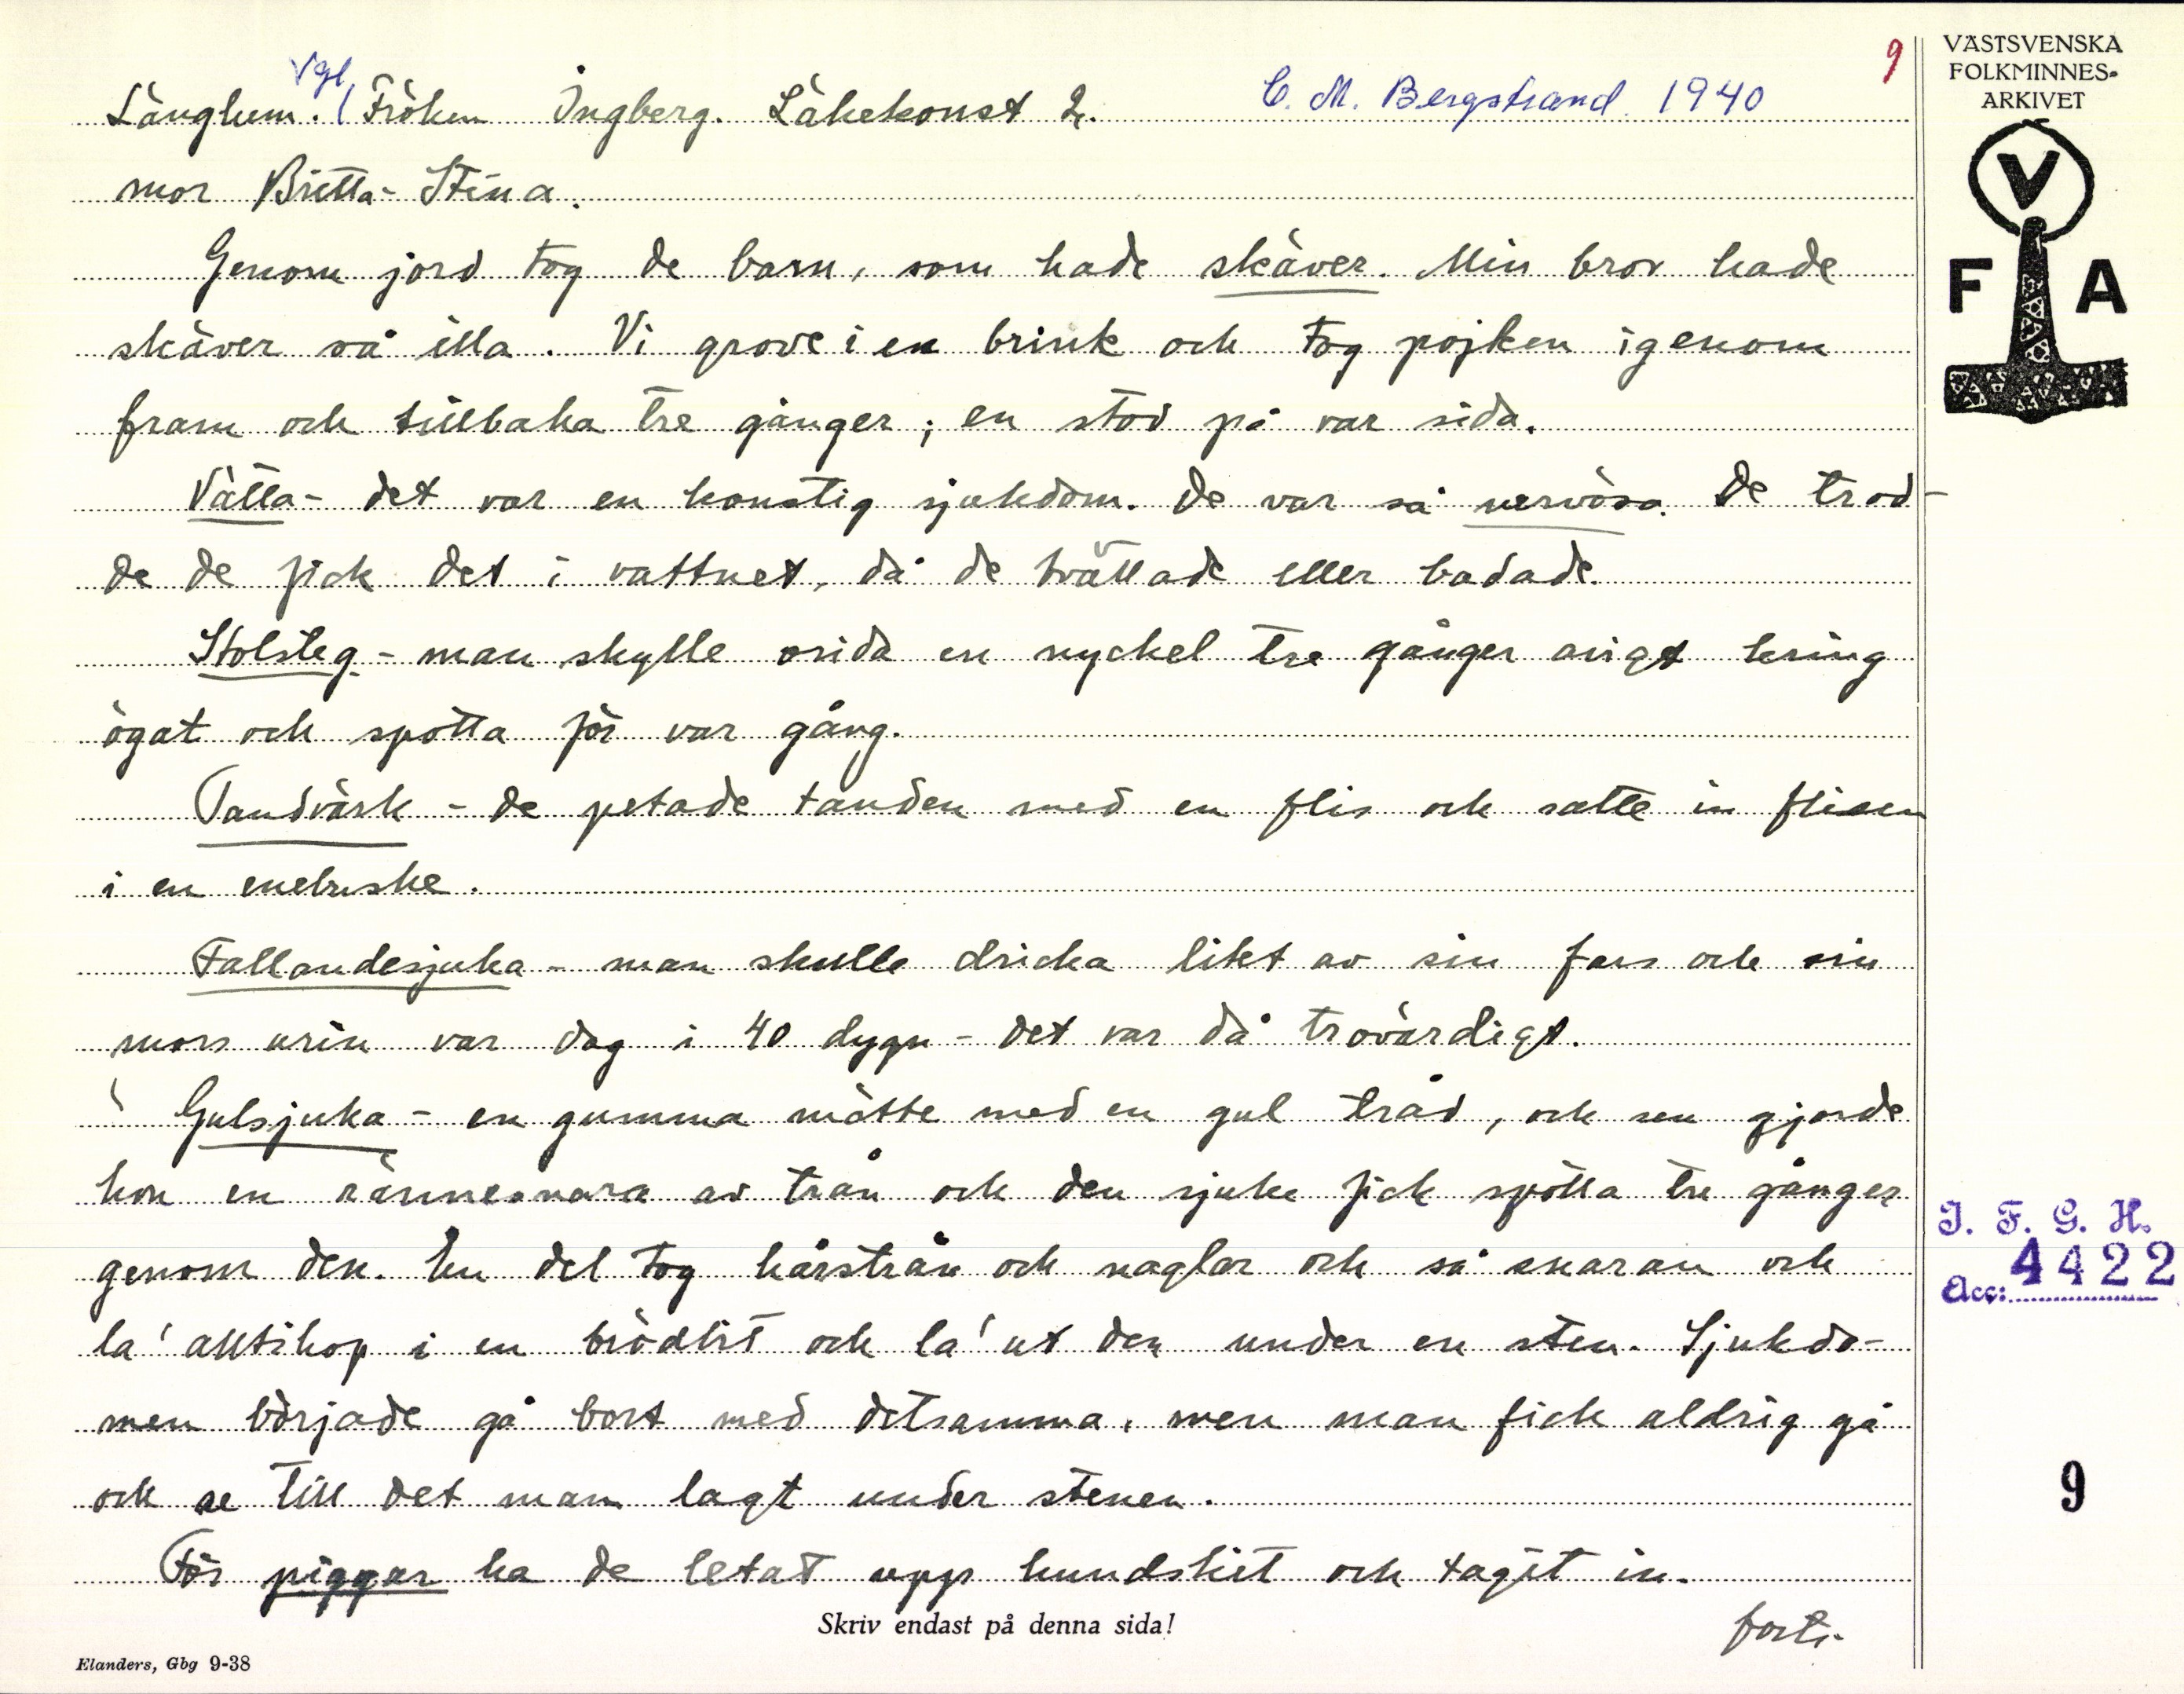 Vgl
Långhem. Fröken Ingberg. Läkekonst 2. C. M. Bergstrand. 1940 9
mor Britta-Stina.
Genom jord tog de barn, som hade skäver. Min bror hade
skäver så illa. Vi grove i en brink och tog pojken igenom
fram och tillbaka tre gånger; en stod på var sida.
Vätta - det var en konstig sjukdom. De var så nervösa. De trod-
de de fick det i vattnet, då de tvättade eller badade.
Stolsteg - man skylle vrida en nyckel tre gånger avigt kring
ögat och spotta för var gång.
Tandvärk - de petade tanden med en flis och satte in flisen
i en enebuske.
Fallandesjuka - man skulle dricka litet av sin fars och sin
mors urin var dag i 40 dygn - det var då trovärdigt.
Gulsjuka - en gumma mätte med en gul tråd, och sen gjorde
hon en rännesnara av trån och den sjuke fick spotta tre gånger
genom den. En del tog hårstrån och naglar och så snaran och
la' alltihop i en brödbit och la' ut den under en sten. Sjukdo-
men började gå bort med detsamma, men man fick aldrig gå
och se till det man lagt under stenen.
För piggar ha de letat upp hundskit och tagit in.
forts.
Skriv endast på denna sida!
Elanders, Gbg 9-38
VÄSTSVENSKA
FOLKMINNES-
ARKIVET
V
F A
I. F. G. H.
Acc: 4422
9